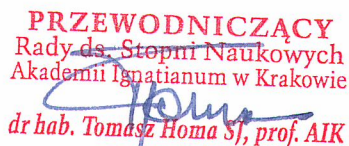 PRZEWODNICZĄCY
Rady ds. Stopni Naukowych
Akademii Ignatianum w Krakowie
dr hab. Tomasz Homa SJ, prof. AIK